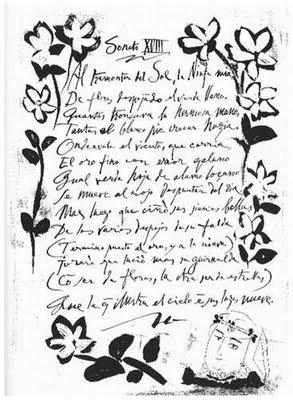 Soneto XVIII
Al tramontar del Sol, la Ninfa mia,
De flores despojando el verde llano,
Quantas troncaba la hermosa mano,
Tantas el blanco pie crecer hazia.
Ondeavale el viento, que corria
El oro fino con error galano
Qual verde hoja de alamo loçano
Se mueve al rojo despuntar del dia
Mas luego que ciño sus sienes bellas
De los varios despojos de su falda
(Termino puesto al oro, y a la nieve)
Juraré que lució mas su guirnalda
(Cõ ser de flores, la otra ser de estrellas)
Que la q̃ illustra el cielo ẽ luzes nueve.